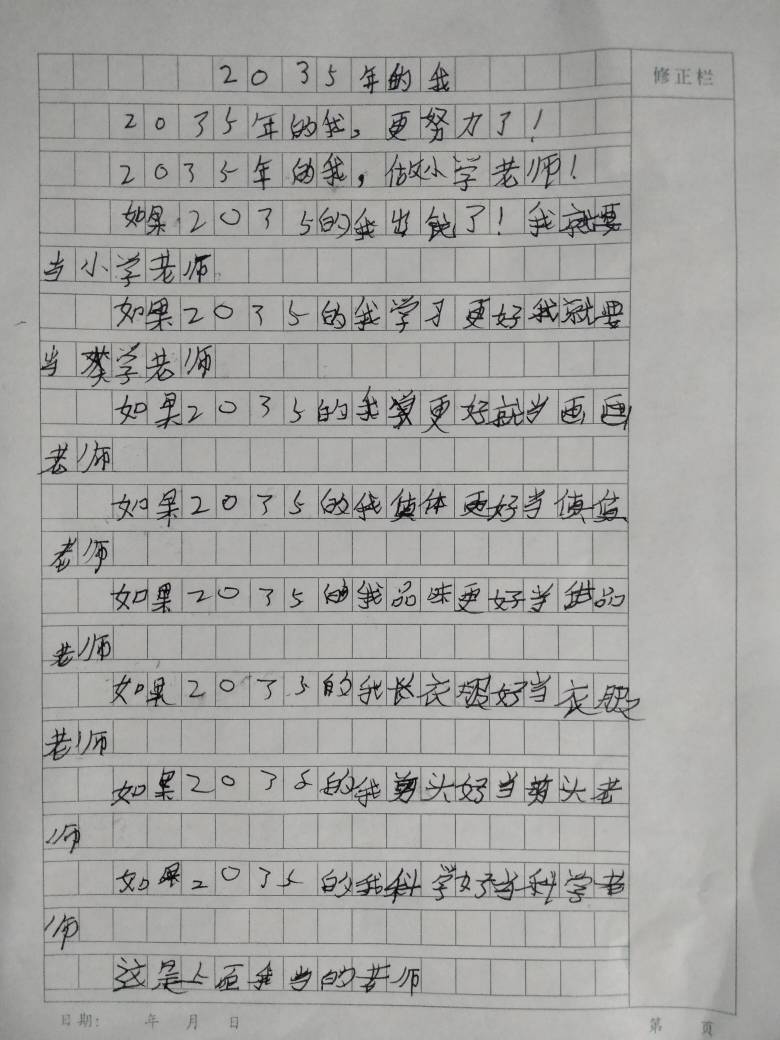 修正栏
2035年的我
2035年的我,更努力了!
2035年的我,做小学老师!
如果2035的我出了!我就要
当小学老师
如果2035的我学习更好我就要
当学老师
如果2035的我更好就当画画
老师
如果2035的我体更好当
老师
如果2035的我品味更好当品
老师
如果2035的我衣服好当衣服
老师
如果2035的我剪头好当剪头老
师
如果2035的我科学好当科学老
师
这是我当的老师
日期: 年 月 日
第 页